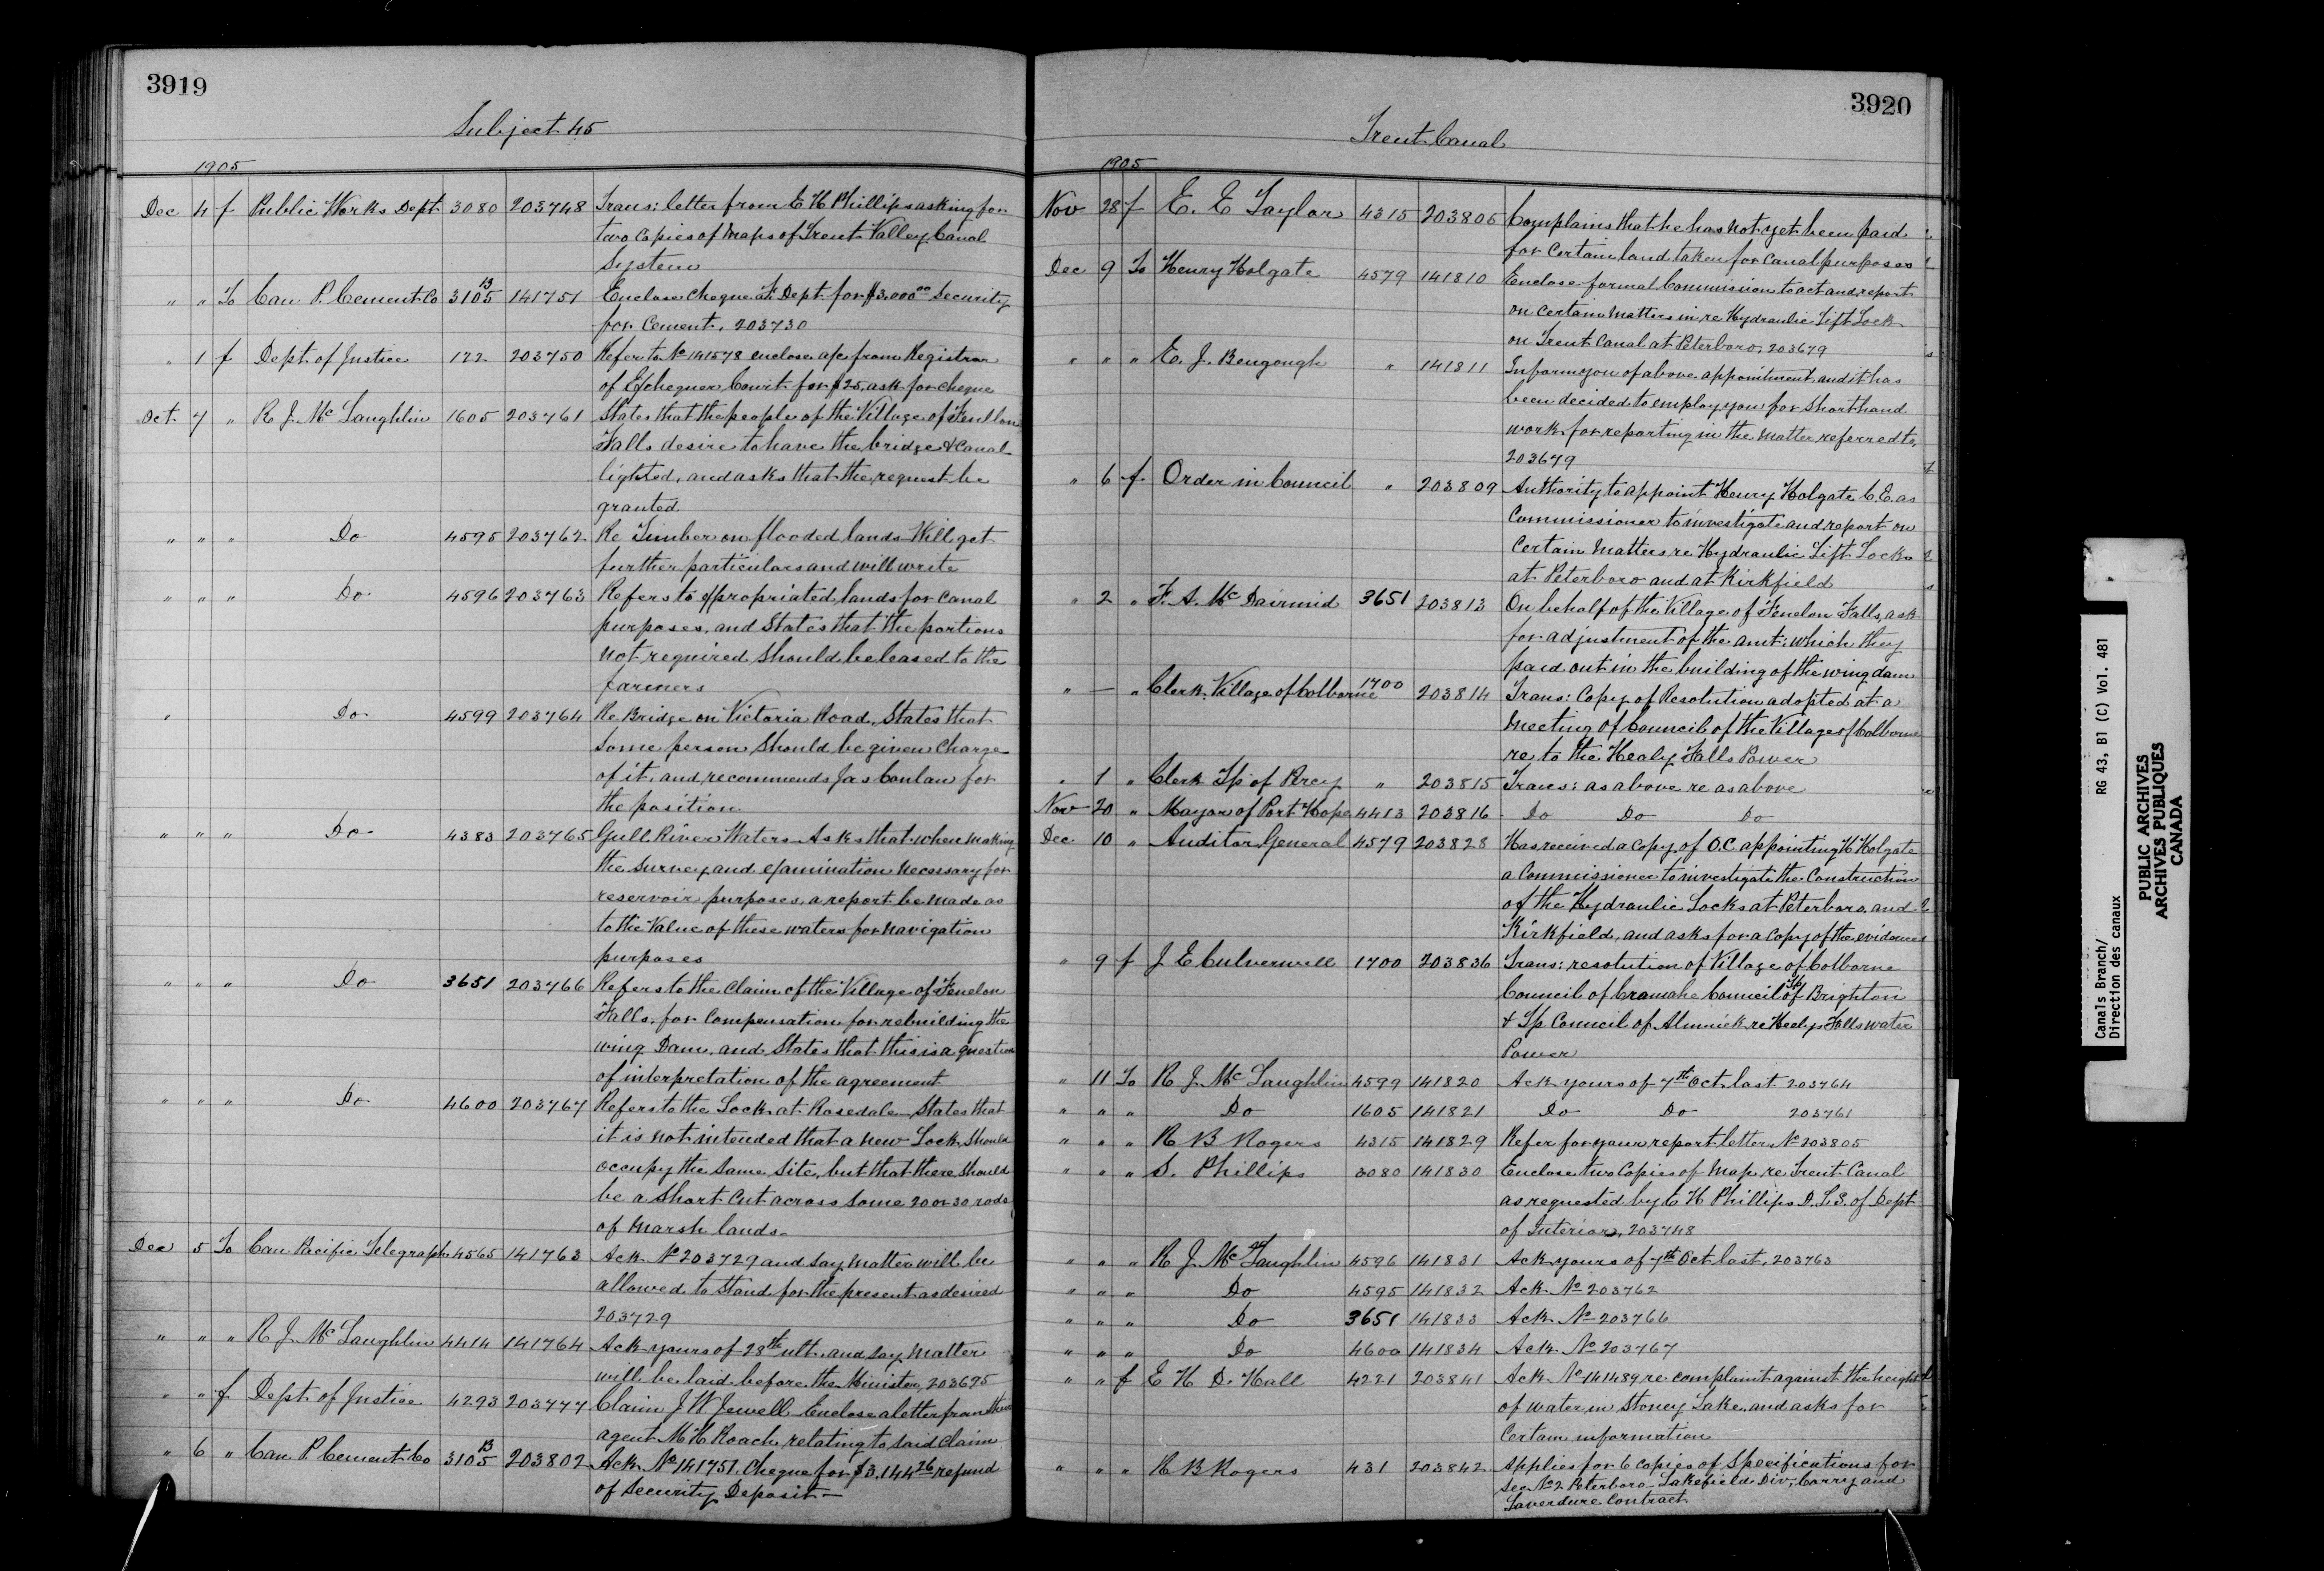 3919
Subject 45
1905
Dec 4 f Public Works Dept 3080 203748 Trans: letter from E H Phillips asking for
two copies of maps of Trent Valley Canal
System
" " To Can P. Cement Co 3105 B 141751 Enclose cheque F. Dept. for $3,000 00 Security
for Cement. 203730
" 1 f Dept. of Justice 122 203750 Refer to No 141578 enclose a/c from Registrar
of Exchequer Court for $25. ask for cheque
Oct 7 " R J. McLaughlin 1605 203761 States that the people of the Village of Fenllon
Falls desire to have the bridge & Canal
lighted, and asks that the request be
granted.
" " " Do 4595 203762 Re Timber on flooded lands Will get
further particulars and will write
" " " Do 4596 203763 Refers to expropriated lands for Canal
purposes, and States that the portions
not required should be leased to the
farmers
" Do 4599 203764 Re Bridge on Victoria Road, States that
some person should be given Charge
of it, and recommends Jas Conlan for
the position
" " " Do 4383 203765 Gull River Waters Asks that when making
the survey and examination necessary for
reservoir purposes, a report be made as
to the Value of these waters for navigation
purposes
" " " Do 3651 203766 Refers to the Claim of the Village of Fenelon
Falls, for Compensation for rebuilding the
wing Dam, and States that this is a question
of interpretation of the agreement
" " " Do 4600 203767 Refers to the Lock at Rosedale States that
it is not intended that a new Lock should
occupy the same site, but that there should
be a short cut across some 20 or 30 rods
of Marsh lands.
Dec 5 To Can Pacific Telegraph 4565 141763 Ack No 203729 and say matter will be
allowed to stand for the present as desired
203729
" " " R J. McLaughlin 4414 141764 Ack yours of 28th ult. and say matter
will be laid before the Minister, 203695
" " f Dept. of Justice 4293 203777 Claim J W Jewell Enclose a letter from their
agent M H Roach, relating to said Claim
" 6 " Can P. Cement Co 3105 B 203802 Ack No 141751. Cheque for $3,144 26 refund
of Security Deposit —
3920
Trent Canal
1905
Nov 28 f E. E Taylor 4315 203805 Complains that he has not yet been paid
for certain land taken for Canal purposes
Dec 9 To Henry Holgate 4579 141810 Enclose formal Commission to act and report
on certain matters in re Hydraulic Lift Lock
on Trent Canal at Peterboro. 203679
" " " E. J. Bengough " 141811 Inform you of above appointment and it has
been decided to employ you for shorthand
work for reporting in the matter referred to.
203679
" 6 f Order in Council " 203809 Authority to appoint Henry Holgate C.E. as
Commissioner to investigate and report on
Certain Matters re Hydraulic Lift Locks
at Peterboro and at Kirkfield
" 2 " F. A. McDairmid 3651 203813 On behalf of the Village of Fenelon Falls, ask
for adjustment of the amt: which they
paid out in the building of the wing dam
" — " Clerk Village of Colborne 1700 203814 Trans: Copy of Resolution adopted at a
Meeting of Council of the Village of Colborne
re to the Healy Falls Power
" 1 " Clerk Tp of Percy " 203815 Trans: as above re as above
Nov 20 " Mayor of Port Hope 4413 203816 Do Do Do
Dec. 10 " Auditor General 4579 203828 Has received a copy of O.C. appointing H Holgate
a Commissioner to investigate the Construction
of the Hydraulic Locks at Peterboro, and
Kirkfield, and asks for a copy of the evidence
" 9 f J E Culverwell 1700 203836 Trans: resolution of Village of Colborne
Council of Cramahe Council of Tp Brighton
& Tp Council of Alnwick re Heelys Falls water
Power
" 11 To R J. McLaughlin 4599 141820 Ack yours of 7th Oct. last 203764
" " " Do 1605 141821 Do Do 203761
" " " R B Rogers 4315 141829 Refer for your report letter No 203805
" " " S. Phillips 3080 141830 Enclose two copies of Map re Trent Canal
as requested by E H Phillips D.L.S. of Dept
of Interior, 203748
" " " R J. McLaughlin 4596 141831 Ack yours of 7th Oct last, 203763
" " " Do 4595 141832 Ack No 203762
" " " Do 3651 141833 Ack No 203766
" " " Do 4600 141834 Ack No 203767
" " f E H D. Hall 4221 203841 Ack No 141489 re complaint against the height
of water in Stoney Lake, and asks for
Certain information
" " " R B Rogers 431 203842 Applies for 6 copies of Specifications for
Sec No 2 Peterboro-Lakefield Div; Corry and
Laverdure Contract
Canals Branch/ RG 43, B1 (C) Vol. 481
Direction des canaux
PUBLIC ARCHIVES
ARCHIVES PUBLIQUES
CANADA